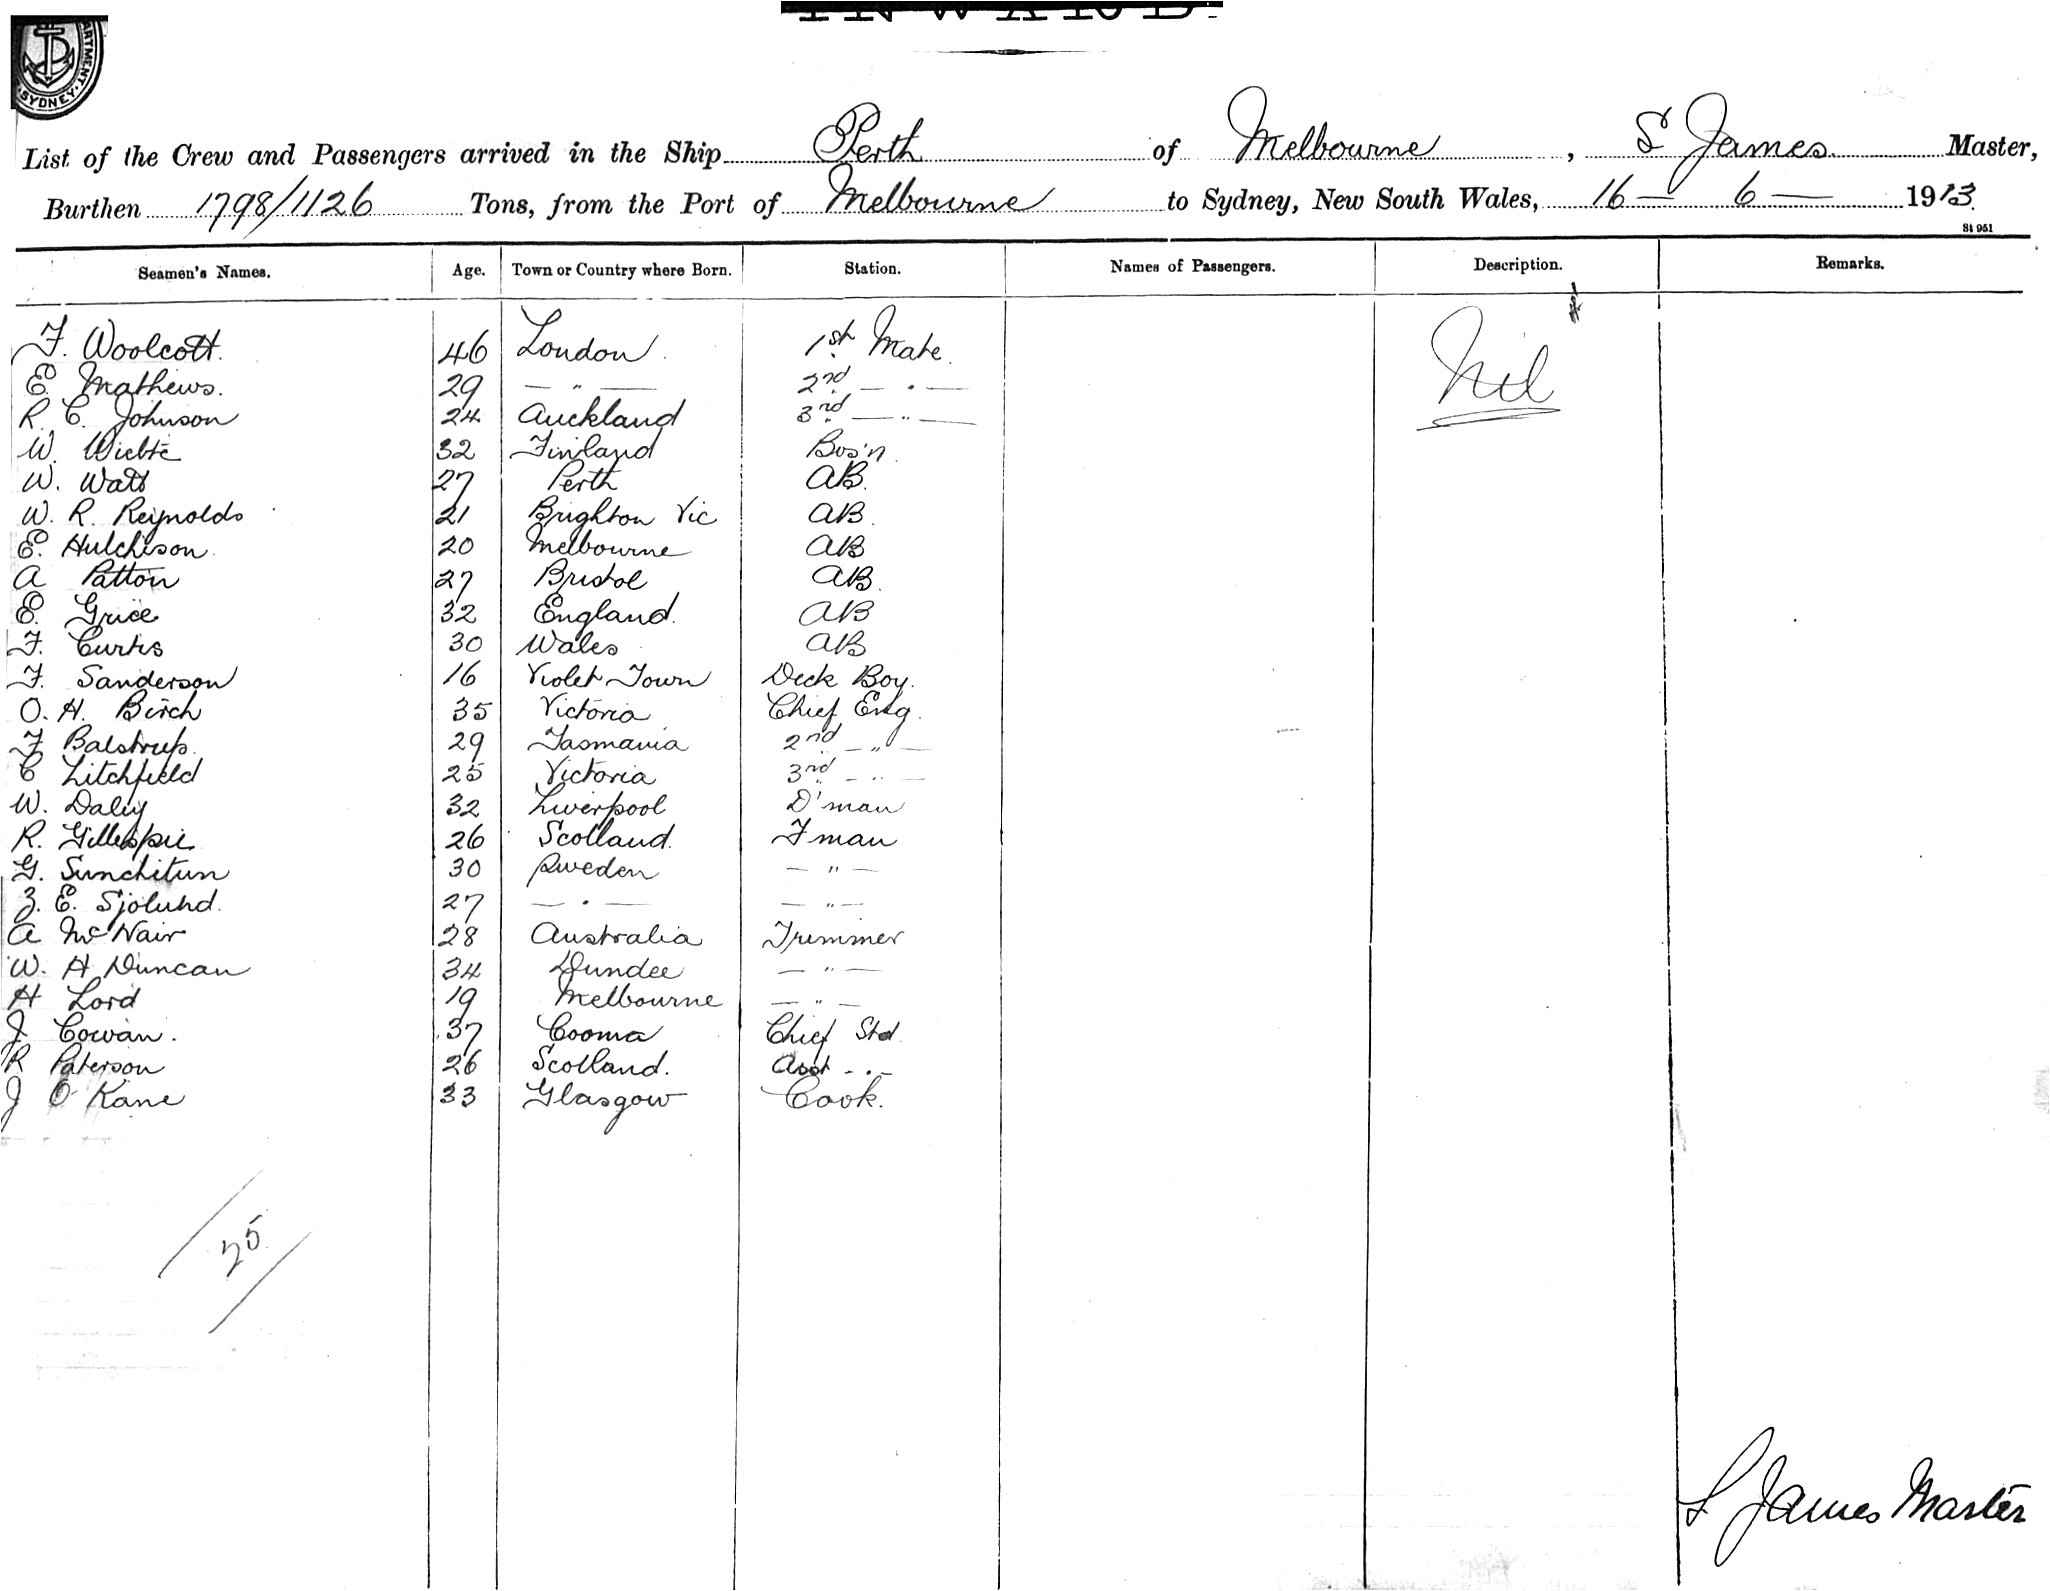 INWARD.
DEPARTMENT. SYDNEY.
List of the Crew and Passengers arrived in the Ship Perth of Melbourne, S James Master,
Burthen 1798/1126 Tons, from the Port of Melbourne to Sydney, New South Wales, 16 — 6 — 1913.
St 951
Seamen's Names. Age. Town or Country where Born. Station. Names of Passengers. Description. Remarks.
F. Woolcott. 46 London. 1st Mate. Nil
E. Mathews. 29 — " — 2nd — " —
R. C. Johnson 24 Auckland 3rd — " —
W. Wiebte 32 Finland Bos'n
W. Watt 27 Perth AB.
W. R. Reynolds 21 Brighton Vic AB.
E. Hutchison. 20 Melbourne AB
A Patton 27 Bristol AB.
E. Grice 32 England. AB
F. Curtis 30 Wales AB
F. Sanderson 16 Violet Town Deck Boy.
O. H. Birch 35 Victoria Chief Eng.
F Balstrup. 29 Tasmania 2nd — " —
C Litchfield 25 Victoria 3rd — " —
W. Daley 32 Liverpool D'man
R. Gillespie 26 Scotland. F man
G. Sunchitun 30 Sweden — " —
Z. E. Sjolund. 27 — " — — " —
A McNair 28 Australia Trimmer
W. H Duncan 34 Dundee — " —
H Lord 19 Melbourne — " —
J Cowan. 37 Cooma Chief Std.
R Paterson 26 Scotland. Asst - " -
J O'Kane 33 Glasgow Cook.
25
S James Master